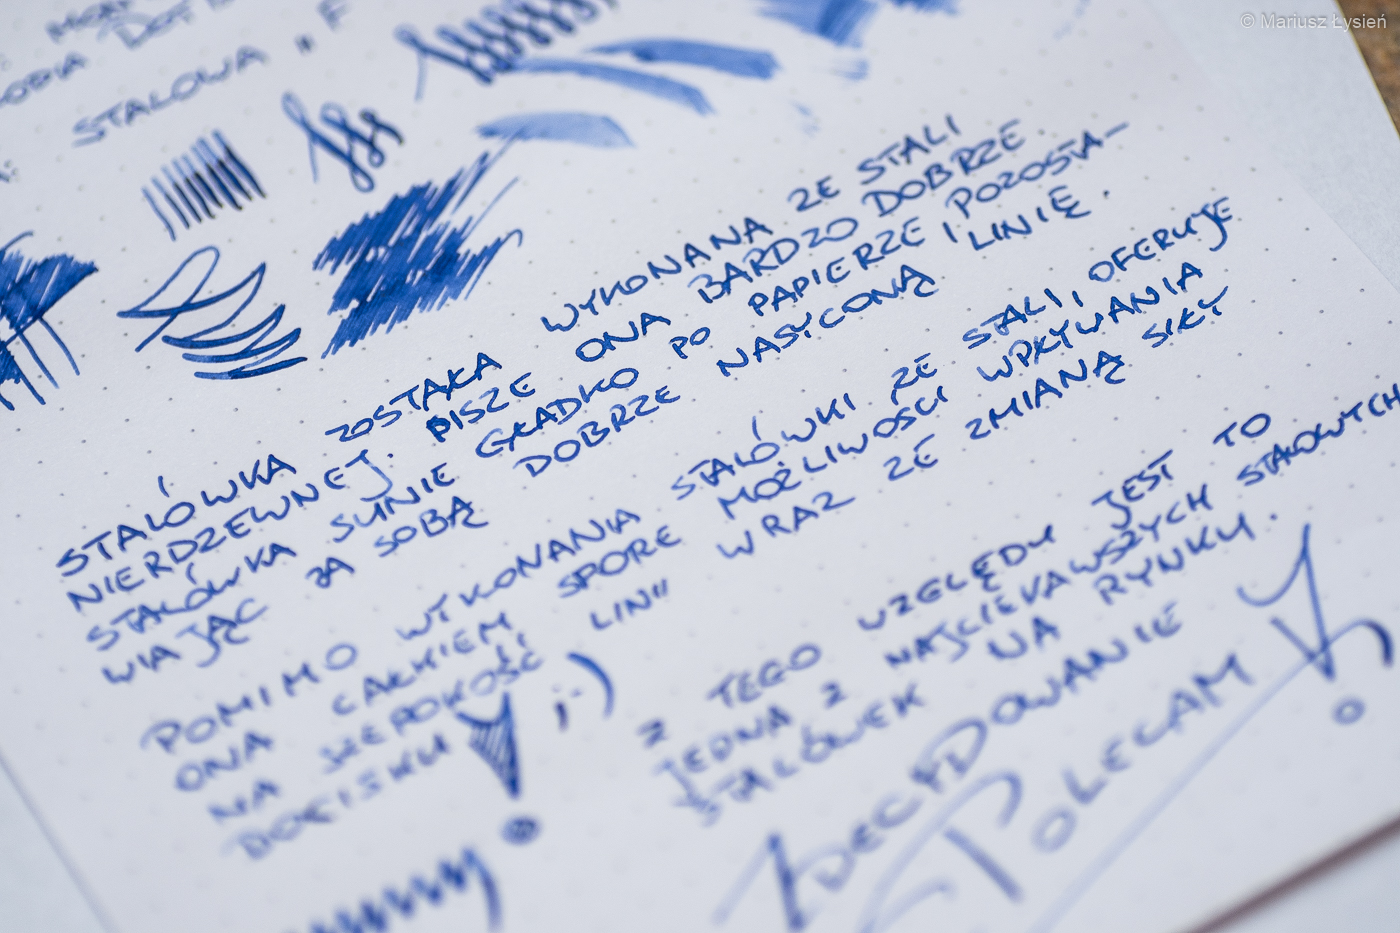 © Mariusz Łysień
STALOWA „F
STALÓWKA ZOSTAŁA WYKONANA ZE STALI
NIERDZEWNEJ. PISZE ONA BARDZO DOBRZE.
STALÓWKA SUNIE GŁADKO PO PAPIERZE I POZOSTA-
WIAJĄC ZA SOBĄ DOBRZE NASYCONĄ LINIĘ.
POMIMO WYKONANIA STALÓWKI ZE STALI, OFERUJE
ONA CAŁKIEM SPORE MOŻLIWOŚCI WPŁYWANIA
NA SZEROKOŚĆ LINII WRAZ ZE ZMIANĄ SIŁY
DOCISKU ! ;-)
Z TEGO WZGLĘDU JEST TO
JEDNA Z NAJCIEKAWSZYCH STALOWYCH
STALÓWEK NA RYNKU.
ZDECYDOWANIE
POLECAM !